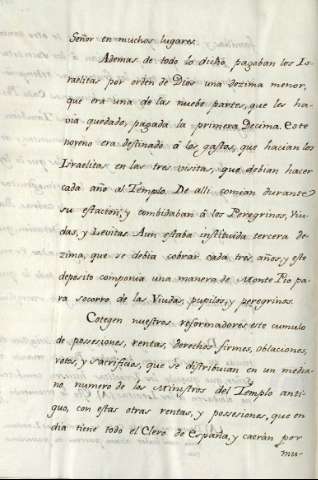 Señor en muchos lugares.
Ademas de todo lo dicho pagaban los Is-
raelitas por orden de Dios una dezima menor,
que era una de las nuebe partes, que les ha-
via quedado, pagada la primera Decima. Este
noveno era destinado á los gastos, que hacian los
Israelitas en las tres visitas, que debian hacer
cada año al Templo. De alli comian durante
su estacion, y combidaban á los Peregrinos, Viu-
das, y Levitas. Aun estaba instituida tercera de-
zima, que se debia cobrar cada tres años y este
deposito componia una manera de Monte Pio pa-
ra socorro de las Viudas, pupilos, y peregrinos.
Cotegen nuestros reformadores este cumulo
de posesiones, rentas, derechos firmes, oblaciones,
votos, y sacrificios, que se distribuian en un media-
no numero de los Ministros del Templo anti-
guo, con estas otras rentas, y possesiones, que en
dia tiene todo el Clero de España, y caeran por
mu-